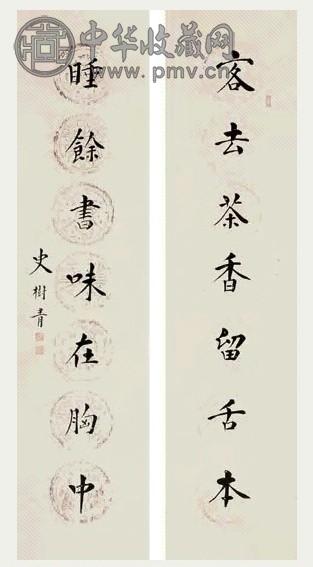 中华收藏网
www.pmv.cn
客去茶香留舌本
睡餘書味在胸中
史樹青